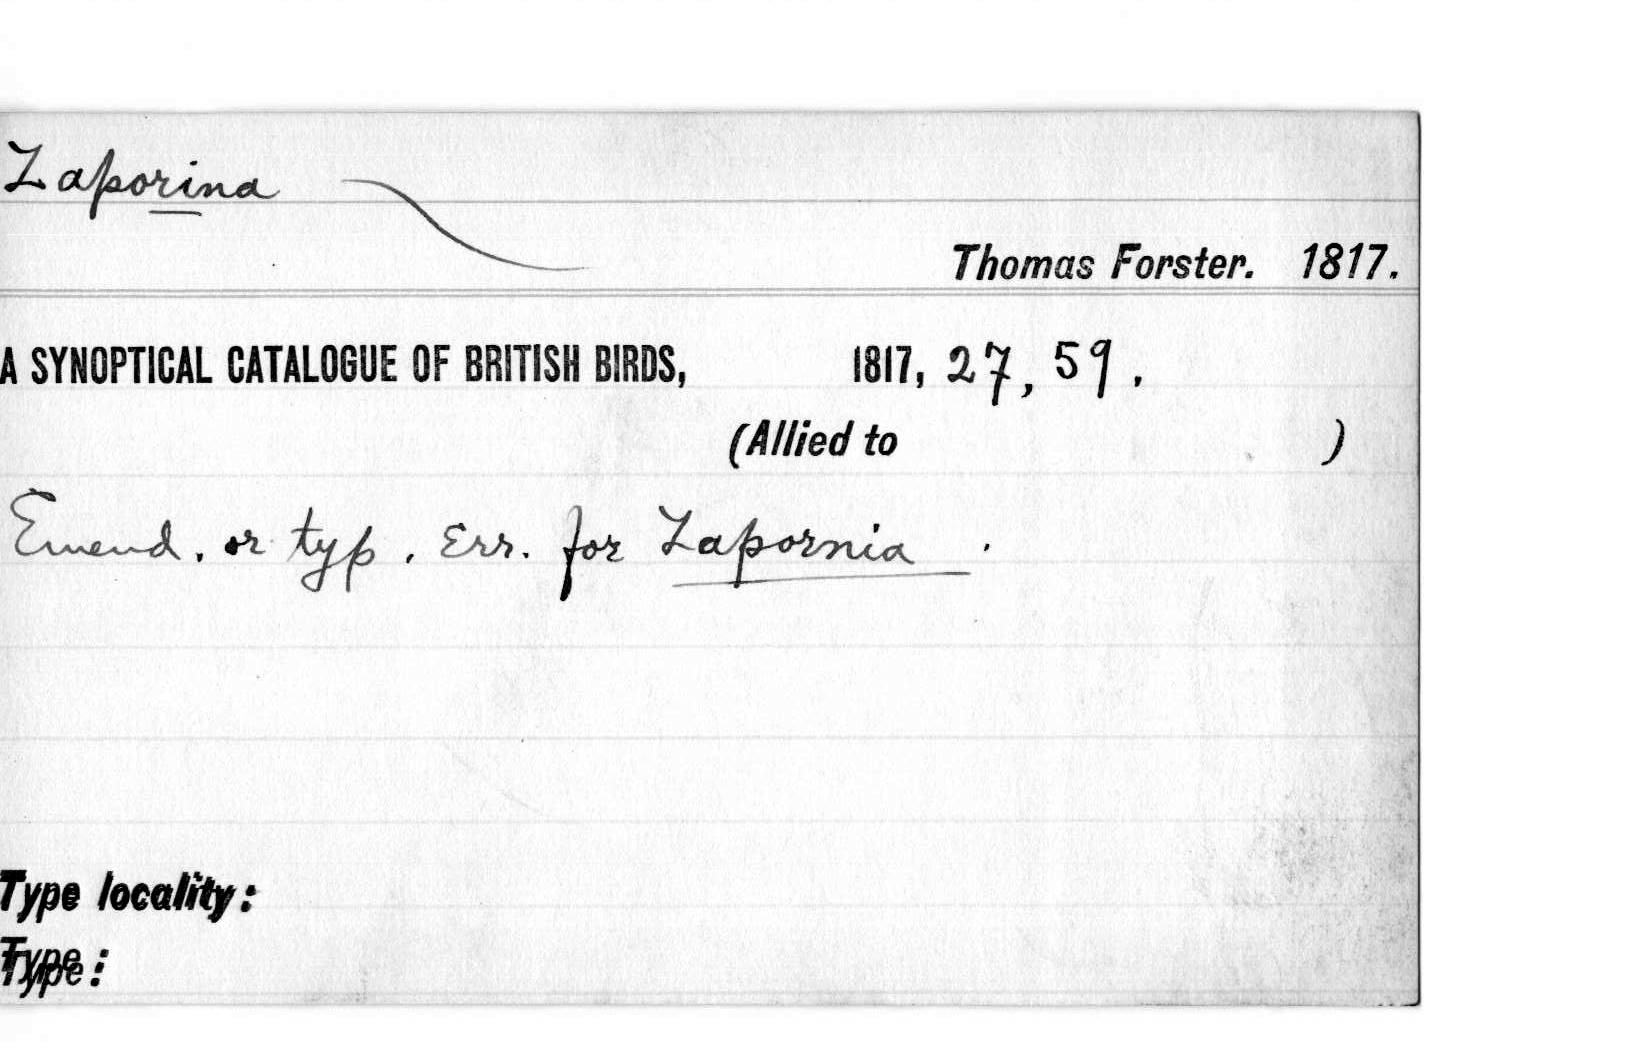 Zaporina
Thomas Forster. 1817.
A SYNOPTICAL CATALOGUE OF BRITISH BIRDS, 1817, 27, 59.
(Allied to )
Emend. or typ. Err. for Zapornia.
Type locality:
Type: